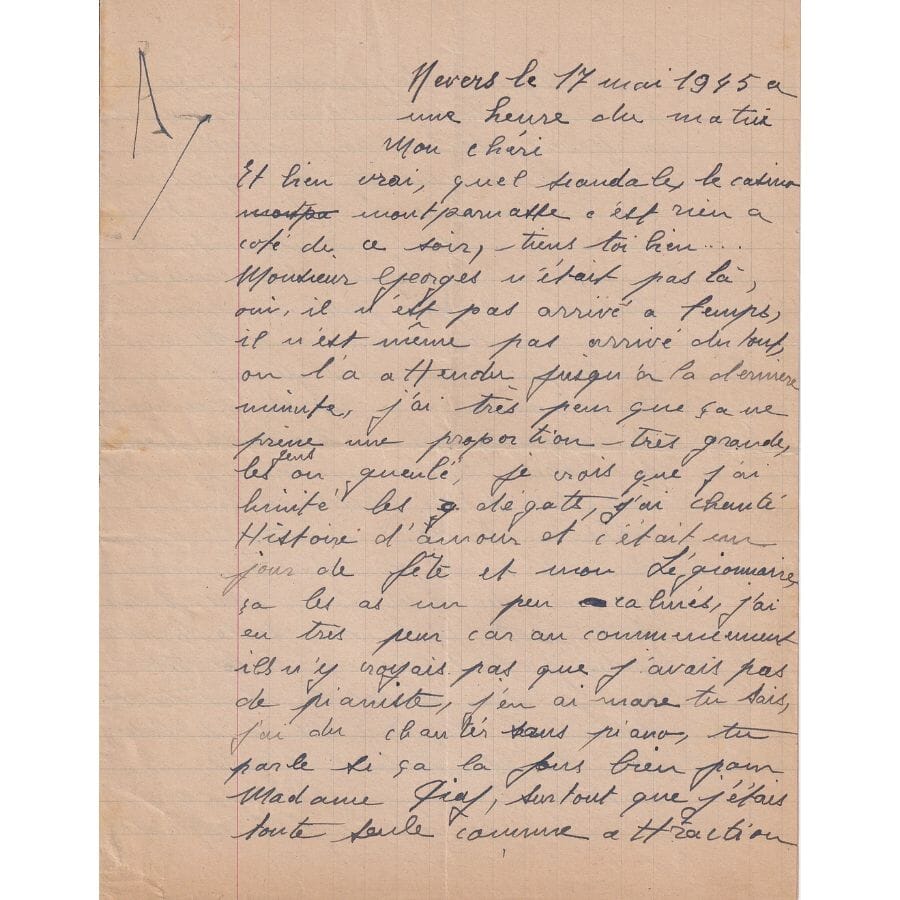 A
Nevers le 17 mai 1945 a
une heure du matin
Mon chéri
Et bien vrai, quel scandale, le casino
montpa montparnasse c'est rien a
coté de ce soir, tiens toi bien....
Monsieur Georges n'était pas là,
oui, il n'est pas arrivé a temps,
il n'est même pas arrivé du tout,
on l'a attendu jusqu'a la dernière
minute, j'ai très peur que ça ne
prène une proportion très grande,
les gens on gueulé, je crois que j'ai
limité les dégats, j'ai chanté
Histoire d'amour et c'était un
jour de fête et mon Légionnaire,
ça les as un peu calmés, j'ai
eu très peur car au commencement
ils n'y croyais pas que j'avais pas
de pianiste, j'en ai mare tu sais,
j'ai du chanter sans piano, tu
parle si ça la fous bien pour
Madame Piaf, surtout que j'étais
toute seule comme attraction